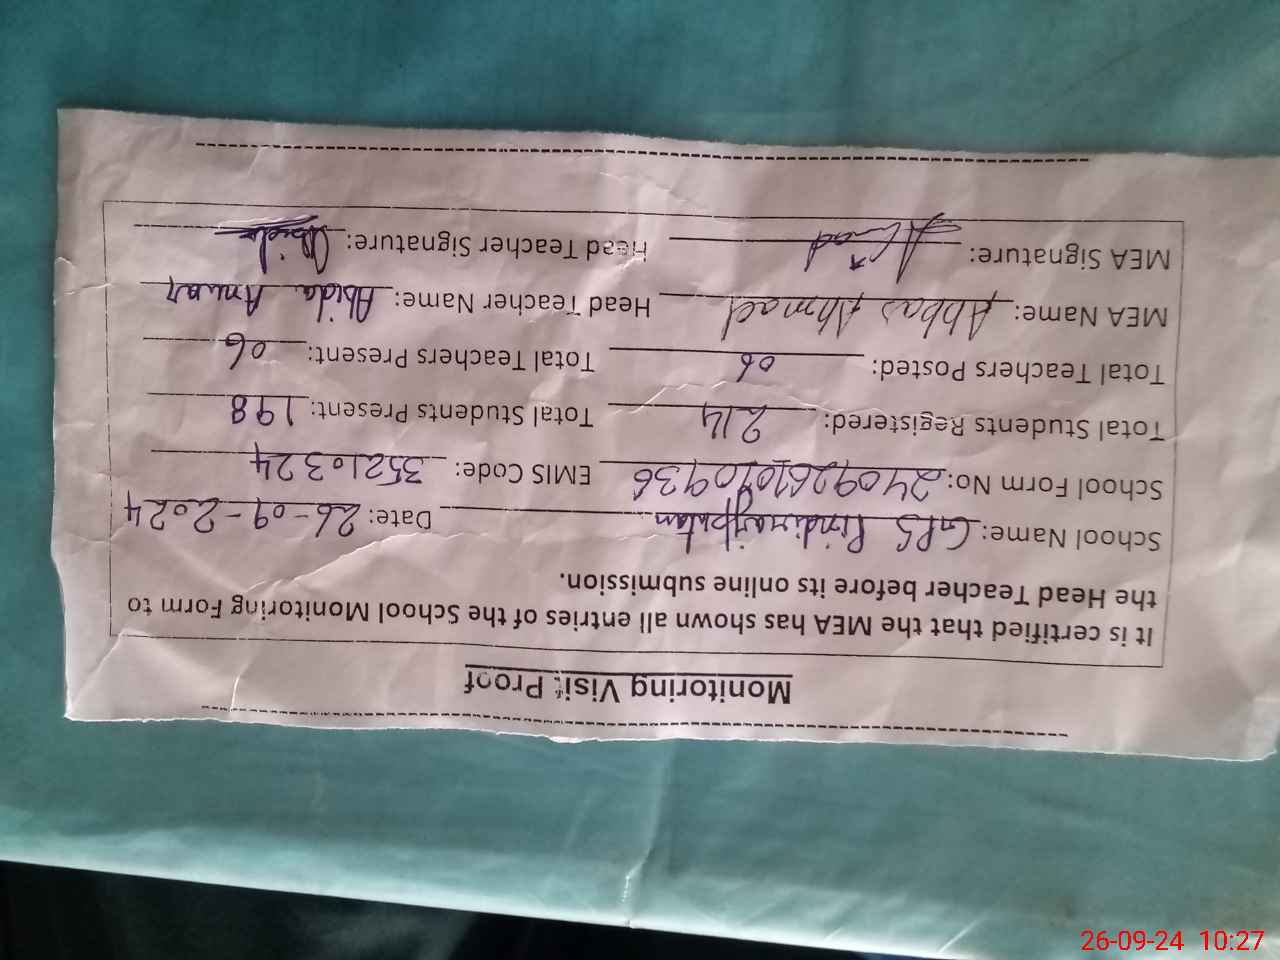 Monitoring Visit Proof
It is certified that the MEA has shown all entries of the School Monitoring Form to
the Head Teacher before its online submission.
School Name: GPS Pindirajputan Date: 26-09-2024
School Form No: 2409261010936 EMIS Code: 35210324
Total Students Registered: 214 Total Students Present: 198
Total Teachers Posted: 06 Total Teachers Present: 06
MEA Name: Abbas Ahmad Head Teacher Name: Abida Anwar
MEA Signature: Ahmad Head Teacher Signature: Abida
26-09-24 10:27